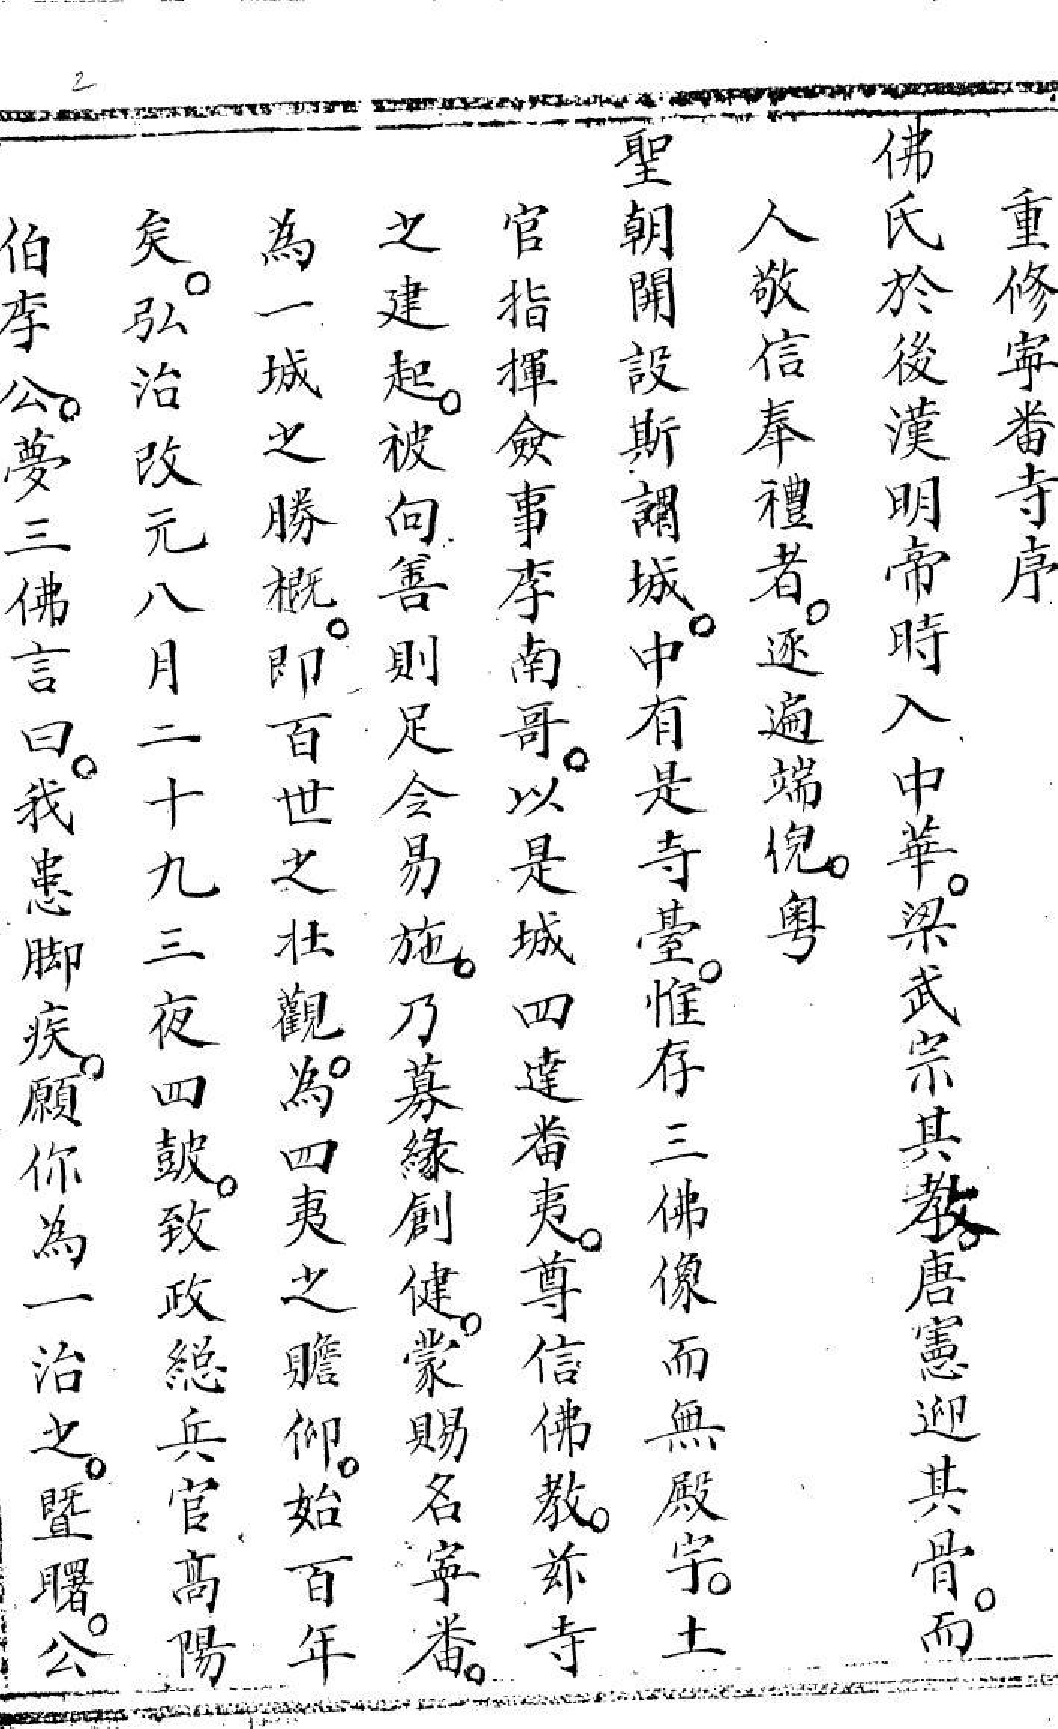 重修寧番寺序
佛氏於後漢明帝時入中華。梁武宗其教。唐憲迎其骨。而
人敬信奉禮者。逐遍端倪。粵
聖朝開設斯謂城。中有是寺臺。惟存三佛像而無殿宇。土
官指揮僉事李南哥。以是城四達番夷。尊信佛教。茲寺
之建起。被向善則足令易施。乃募緣創健。蒙賜名寧番。
為一城之勝概。即百世之壯觀。為四夷之瞻仰。始百年
矣。弘治改元八月二十九三夜四鼓。致政總兵官高陽
伯李公。夢三佛言曰。我患脚疾。願你為一治之。暨曙。公
2